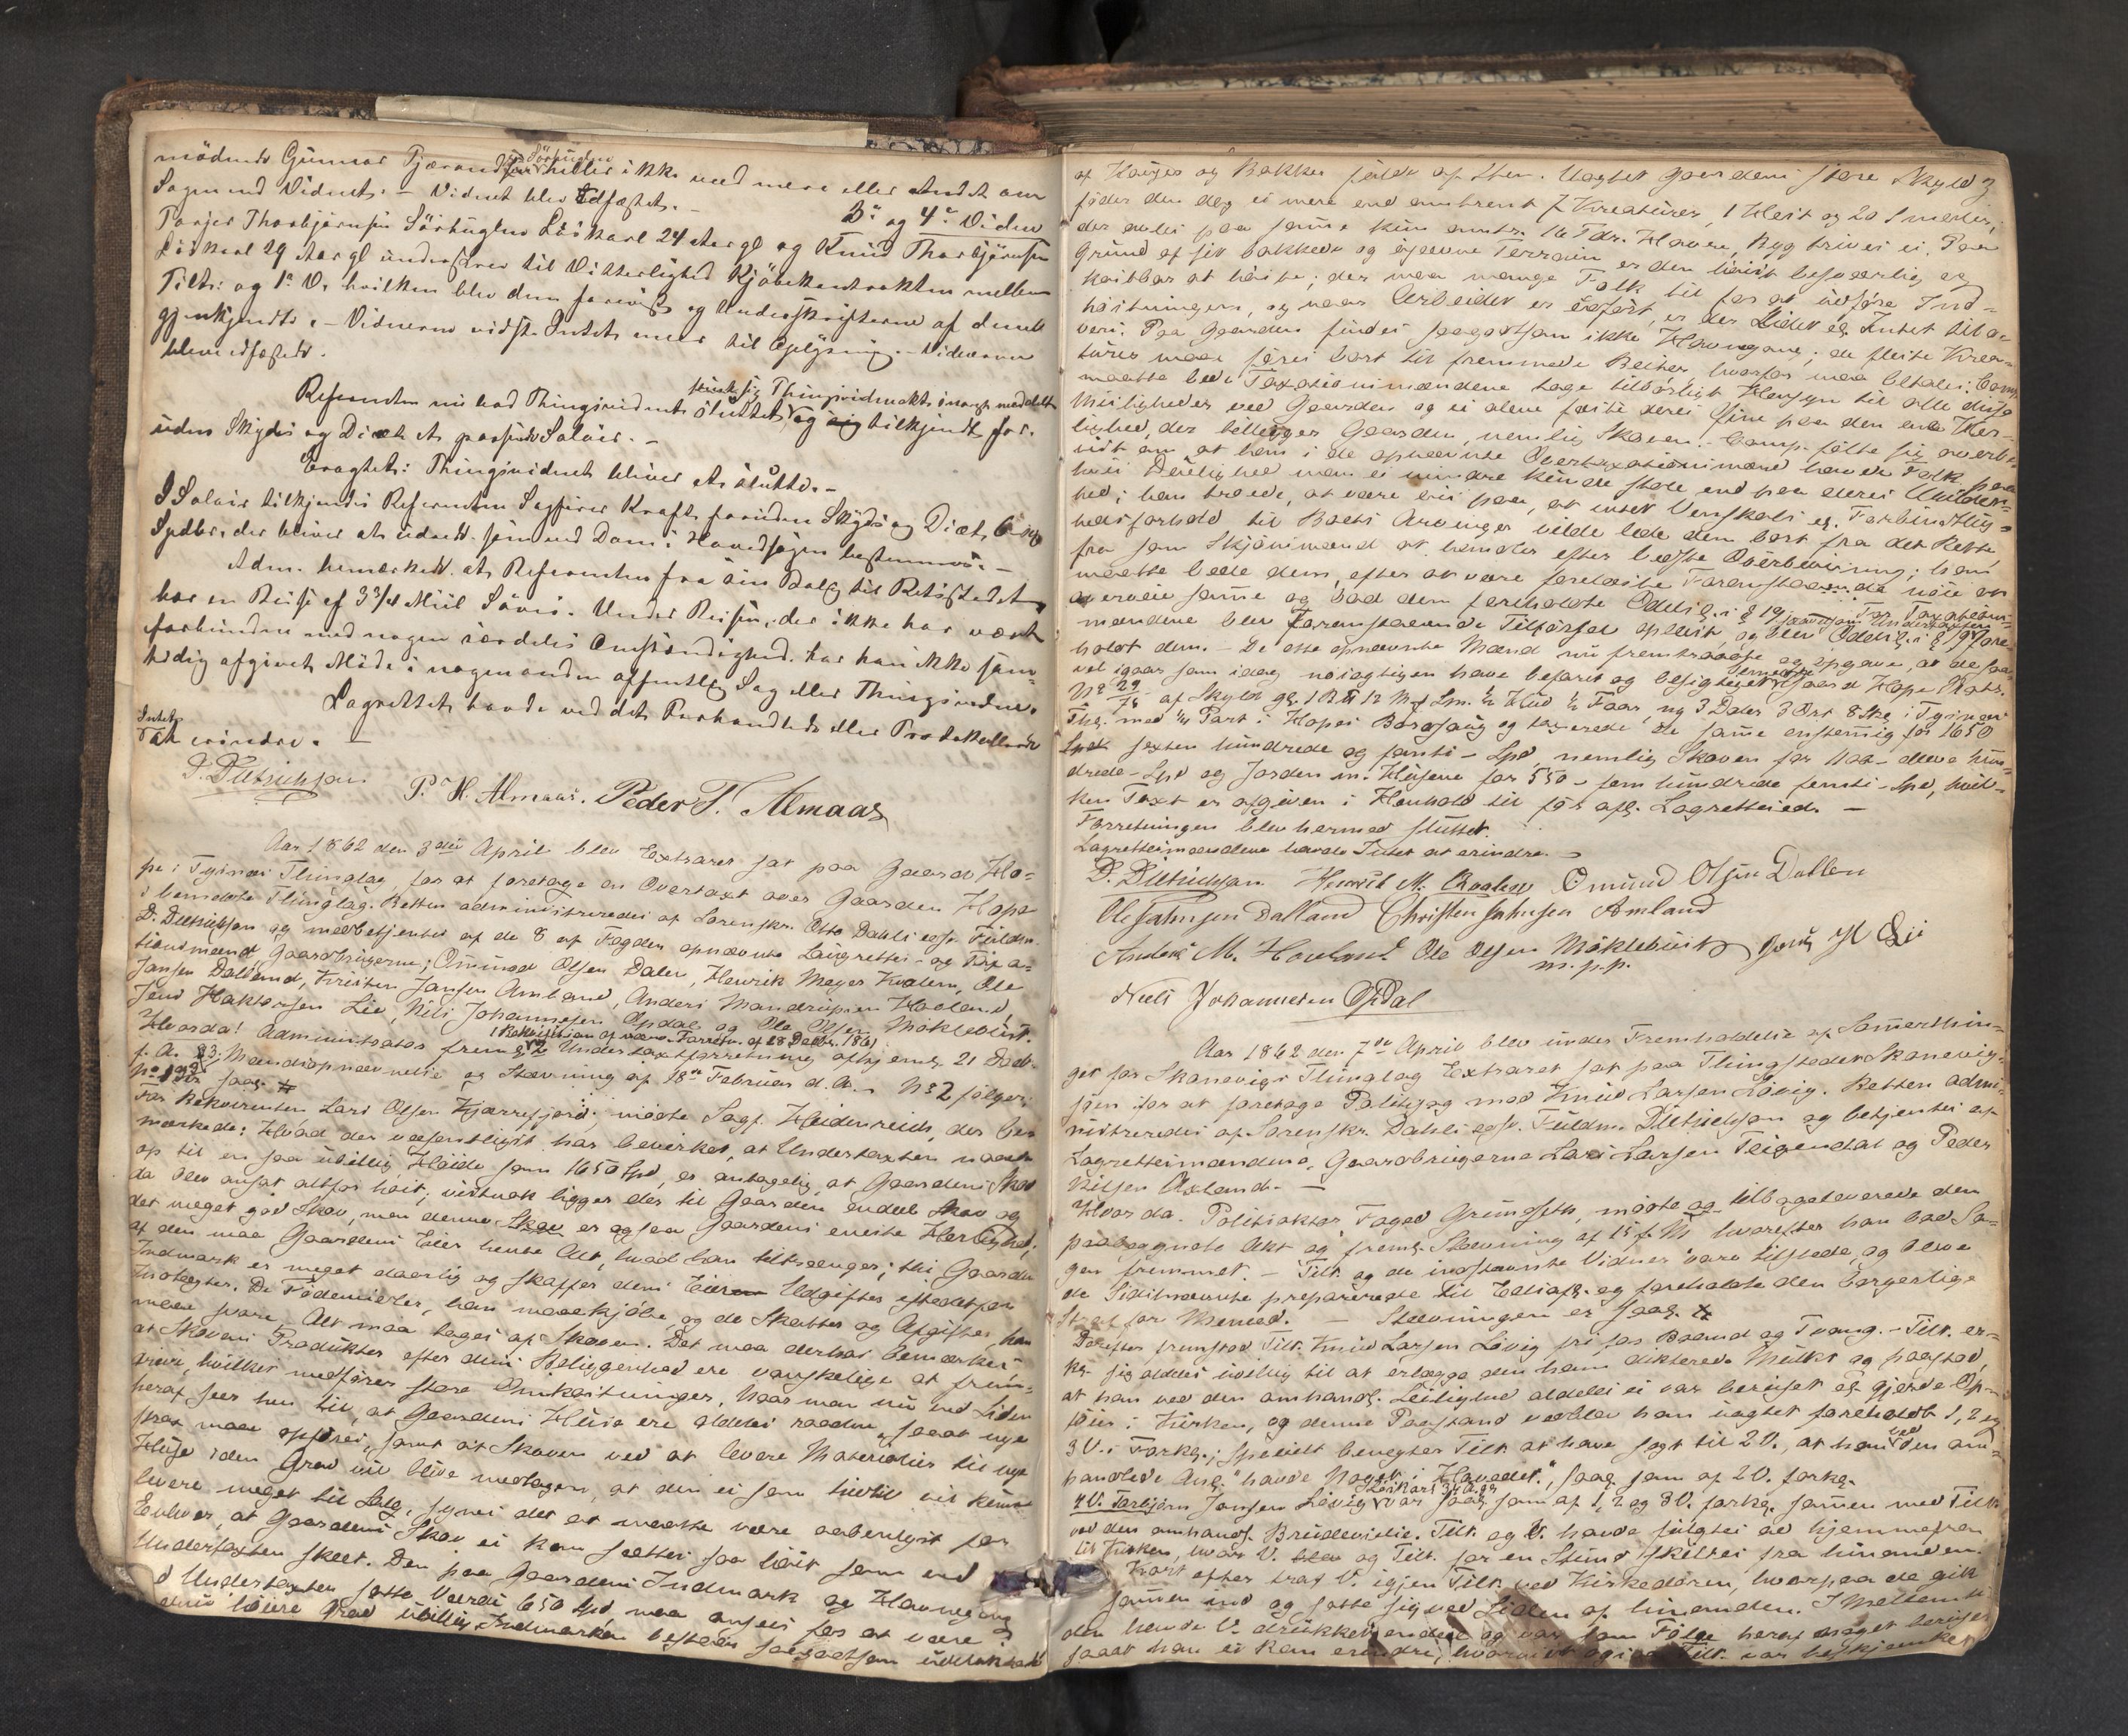 mødende Gunnar Tjærand
Søhuglen
heller ikke ved mere eller Andet om
Sagen end Vidnet. - Vidnet blev Edfæstet. -
3die og 4de Vidne
Torger Thorbjørnsen Sørhuglen Løskarl 24 Aar gl og Knud Thorbjørnsen
Løskarl 29 Aar gl underskrev til Vitterlighed Kjøbekontrakten mellem
Tilt: og 1ste V. hvilken blev dem forevist og Underskrifterne af dem
gjenkjendte. - Vidnerne vidste Intet mere til Oplysning. - Vidnerne
bleve edfæstede.
Referenten nu bad Thingsvidnet sluttet, Thingsvidneakt
og sig tilkjendt for-
uden Skyds og Diæt et passende Salair. -
Eragtet: Thingsvidnet bliver at slutte. -
I Salair tilkjendes Referenten Sagfører Krafft foruden Skyds og Diæt 6
Spdlr., der bliver at udrede som ved Dom i Hovedsagen bestemmes. -
Adm. bemærkede at Referenten fra sin Bolig til Retsstedet
har en Reise af 3 3/4 Miil Søvei. Under Reisen, der ikke har været
forbunden med nogen særdeles Omstændighed, har han ikke sam-
tidig afgivet Møde i nogen anden offentlig Sag eller Thingsvidne.
Lagrettet havde ved det Forhandlede eller Protokollerede
Intet
at erindre. -
D. Ditrichson P. H. Almaas. Peder T. Almaas
Aar 1862 den 3die April blev Extraret sat paa Gaard Ho-
pe i Tysnæs Thinglag, for at foretage en Overtaxt over Gaarden Hope
i bemeldte Thinglag. Retten administreredes af Sorenskr. Otto Dahls edsv. Fuldm.
D. Ditrichson og medbetjentes af de 8 af Fogden opnævnte Laugrettes- og Taxa-
tionsmænd, Gaardbrugerne; Ommund Olsen Dalen, Henrik Meyer Kvalen, Ole
Jansen Dalland, Kristen Jansen Amland, Anders Mandrupsen Hovland,
Jens Haktorsen Lie, Nils Johannesen Opdal og Ole Olsen Møklebust.
Hvorda! Administrator freml.
1 Rekvisition af 28 Decbr. 1861
2 Undertaxtforretning afhjemlt 21 Decbr.
f. A. 3: Mandsopnævnelse og Stævning af 18de Februar d. A. - No 2 følger.
No 1 og 3 saal. #
For Rekvirenten Lars Olsen Kjærrefjord, mødte Sagf. Heidenreich, der be-
mærkede: Hvad der væsentligst har bevirket, at Undertaxten naaede
op til en saa ubillig Høide som 1650 Spd, er antagelig, at Gaardens Skov
da blev ansat altfor høit; vistnok ligger der til Gaarden endeel Skov og
det meget god Skov, men denne Skov er ogsaa Gaardens eneste Herlighed;
af den maa Gaardens Eier hente Alt, hvad han tiltrænger; thi Gaardens
Indmark er meget daarlig og skaffer dens Eier Udgifter istedetfor
Indtægter. De Fødemidler, han maa kjøbe og de Skatter og Afgifter, han
maa svare, Alt maa tages af Skoven. Det maa derhos bemærkes
at Skovens Produkter efter dens Beliggenhed ere vanskelige at frem-
drive, hvilket medfører store Omkostninger. Naar man nu ved Siden
heraf seer hen til, at Gaardens Huse ere aldeles raadne, saaat nye
strax maa opføres, samt at Skoven ved at levere Materialier til nye
Huse i den Grad vil blive medtagen, at den ei som hidtil vil kunne
levere meget til Salg, synes det at maatte være aabenlyst for
Enhver, at Gaardens Skov ei kan sættes saa høit som ved
Undertaxten skeet. Den paa Gaardens Indmark og Havnegang
ved Undertaxten satte Værdi 650 Spd maa ansees for at være i
endnu høiere Grad ubillig. Indmarken bestaar saagodtsom udelukkende
af Houger og Bakker fulde af Sten. Uagtet Gaardens store Skyld
føder den dog ei mere end omtrent 7 Kreaturer, 1 Hest og 20 Smaler;
der avles paa samme kun omtr. 16 Tdr. Havre, Byg trives ei. Paa
Grund af sit bakkede og ujævne Terrain er den høist besværlig og
kostbar at høste; der maa mange Folk til for at udføre Ind-
høstningen, og naar Arbeidet er udført, er der Lidet ell. Intet tilo-
vers. Paa Gaarden findes saagodtsom ikke Havnegang; de fleste Krea-
turer maa føres bort til fremmede Beiter, hvorfor maa betales. Comp.
maatte bede Taxationsmændene tage tilbørligt Hensyn til alle disse
Misligheder ved Gaarden og ei alene fæste deres Øine paa den ene Her-
lighed, der tillægges Gaarden, nemlig Skoven. Comp. følte sig overbe-
vist om, at han i de opnævnte Overtaxationsmænd havde Folk, paa
hvis Dygtighed man ei mindre kunde stole end paa deres Uvilden-
hed; han troede, at være vis paa, at intet Venskabs ell. Forbindtlig-
hedsforhold til Boets Arvinger vilde lede dem bort fra det Rette
fra som Skjønsmænd at handle efter bedste Overbeviisning; han
maatte bede dem, efter at være forelæste Foranstaaende nøie
overveie samme og bad dem foreholdte Odelsl.s § 19. For Taxations-
mændene blev Foranstaaende Tilførsel oplæst, og blev Odelsl.s § 19 fore-
holdt dem. - De otte opnævnte Mænd nu fremtraadte og opgave, at de saa-
vel igaar som idag nøiagtigen have befaret og besigtiget
bemeldte
Gaard Hope Matr.
No 29/75 af Skyld gl. 1 Pd 12 Mk Sm. 1/2 Hud 1/2 Faar, ny 3 Daler 3 Ort 8 Sk. i Tysnæs
Thgl. med 1/4 Part i Hopes Bordsaug og taxerede de samme enstemmig for 1650
Spd sexten hundrede og femti - Spd, nemlig Skoven for 1100 - elleve hun-
drede - Spd og Jorden m. Husene for 550 - fem hundrede femti - Spd, hvil-
ken Taxt er afgiven i Henhold til før afl. Lagretteed. -
Forretningen blev hermed sluttet.
Lagrettesmændene havde Intet at erindre. -
D. Ditrichson Henrik M. Kvalen Omund Olsen Dallen
Ole Jahnsen Dalland Christen Jahnsen Amland
Anders M. Hovland Ole Olsen Møklebust Jens H Lie
m. p. p.
Niels Johannesen Opdal
Aar 1862 den 7de April blev under Fremholdelse af Sommerthin-
get for Skonevigs Thinglag Extraret sat paa Thingstedet Skonevig-
søen for at foretage Politisag mod Knud Larsen Løvig. Retten admi-
nistreredes af Sorenskr. Dahls edsv. Fuldm. Ditrichson og betjentes af
Lagrettesmændene, Gaardbrugerne Lars Larsen Teigendal og Peder
Nilsen Axland. -
Hvorda. Politiaktor Foged Grundseth, mødte og tilbageleverede den
paabegyndte Akt og freml. Stævning af 15 f. M. hvorefter han bad Sa-
gen fremmet. - Tilt. og de indstævnte Vidner vare tilstede, og bleve
de Sidstnævnte præparerede til Edsafl. og foreholdte den borgerlige
Straf for Meneed. - Stævningen er saal. #
Derefter fremstod Tilt. Knud Larsen Løvig fri for Baand og Tvang. - Tilt. er-
kl. sig aldeles uvillig til at erlægge den ham dikterede Mulkt og paastod,
at han ved den omhandl. Leilighed aldeles ei var beruset ell. gjorde Op-
søier i Kirken, og denne Paastand vedblev han uagtet foreholdt 1, 2 og
3 V.s Forkl.; specielt benegter Tilt. at have sagt til 2 V., at han
ved
den om-
handlede Anl. "havde Noget i Hovedet.", saal. som af 2 V. forkl.
4 V. Torbjørn Jansen Løvig
Løskarl 34 A. gl.
var saal. som af 1, 2 og 3 V. forkl. sammen med Tilt.
ved den omhandl. Brudevielse. Tilt. og V. havde fulgtes ad hjemmefra
til Kirken, hvor V. blev og Tilt. for en Stund skiltes fra hinanden.
Kort efter traf V. igjen Tilt. ved Kirkedøren, hvorpaa de gik
sammen ind og satte sig ved Siden af hinanden. I Mellemti-
den havde V. drukket endeel og var som Følge heraf noget beruset
saaat han ei kan erindre, hvorvidt ogsaa Tilt. var beskjænket